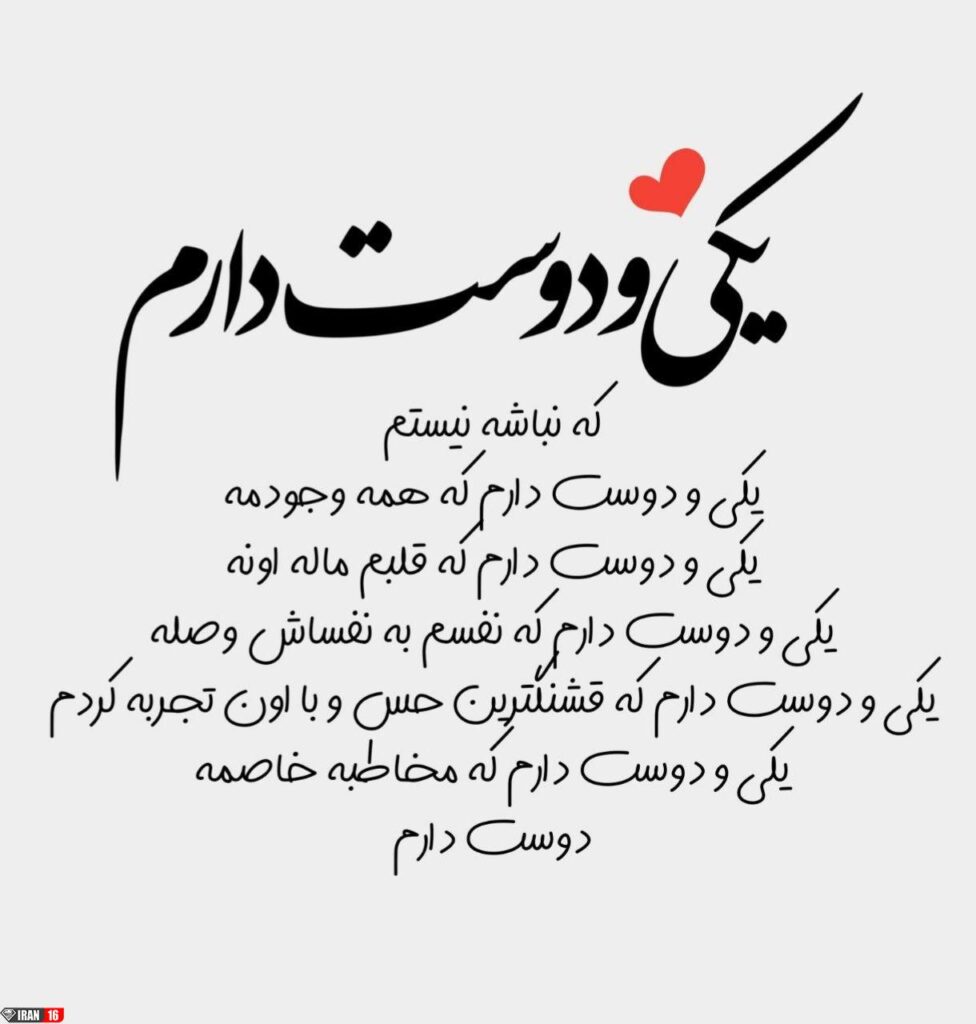 یکی و دوست دارم
که نباشه نیستم
یکی و دوست دارم که همه وجودمه
یکی و دوست دارم که قلبم ماله اونه
یکی و دوست دارم که نفسم به نفساش وصله
یکی و دوست دارم که قشنگترین حس و با اون تجربه کردم
یکی و دوست دارم که مخاطبه خاصمه
دوست دارم
IRAN 16